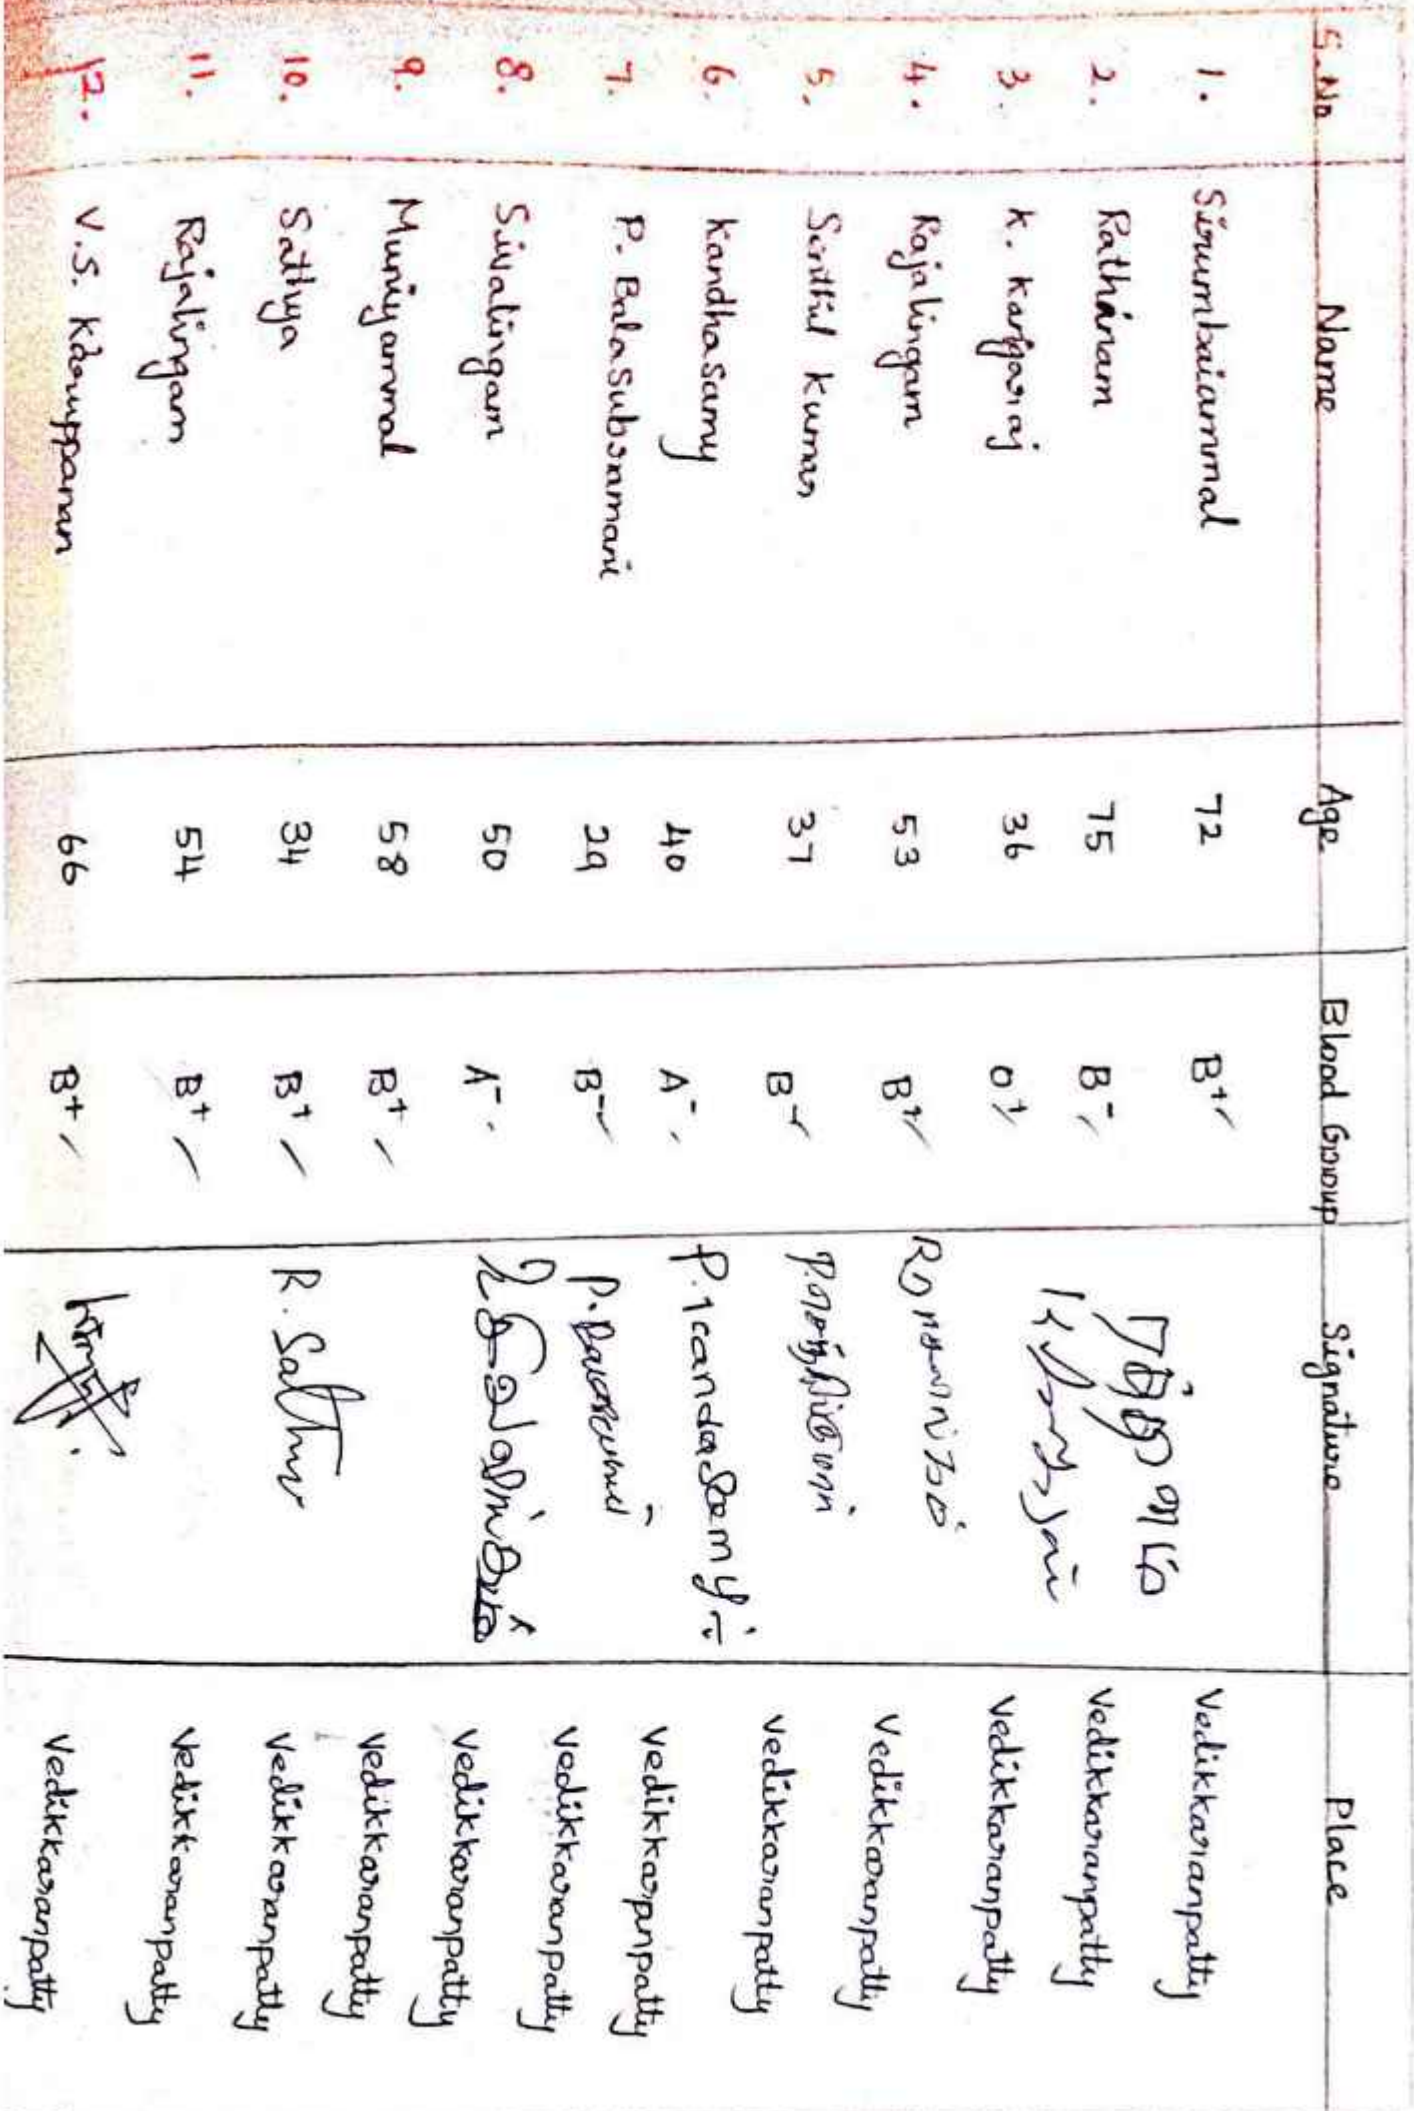 S.No Name Age Blood Group Signature Place
1. Sirumbaiammal 72 B+ Vedikkaranpatty
2. Rathinam 75 B- Vedikkaranpatty
3. K. Kangaraj 36 O+ Vedikkaranpatty
4. Rajalingam 53 B+ Vedikkaranpatty
5. Senthil Kumar 37 B- Vedikkaranpatty
6. Kandhasamy 40 A- P. Kandasamy Vedikkaranpatty
7. P. Balasubramani 29 B- Vedikkaranpatty
8. Sivalingam 50 A- Vedikkaranpatty
9. Muniyammal 58 B+ Vedikkaranpatty
10. Sathya 34 B+ R. Sathy Vedikkaranpatty
11. Rajalingam 54 B+ Vedikkaranpatty
12. V.S. Karuppanan 66 B+ Vedikkaranpatty